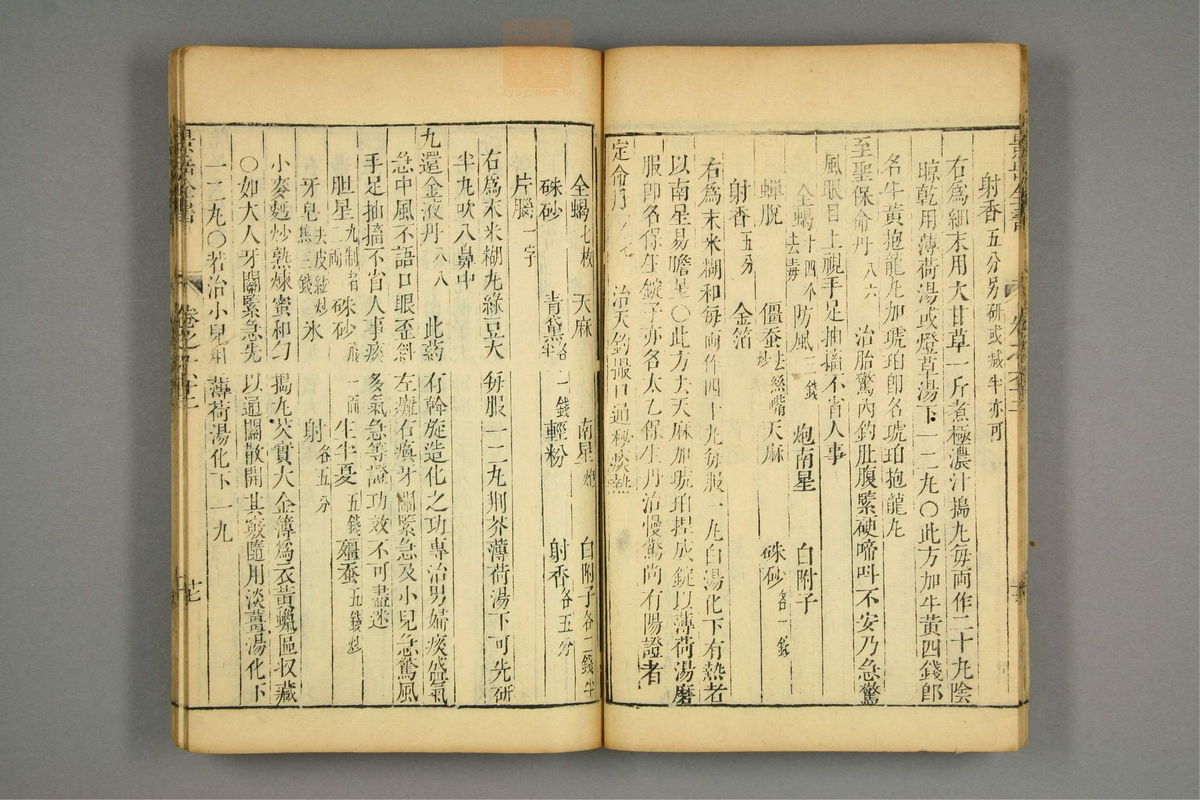 射香五分另研或减半亦可
右爲細末用大甘草一斤煮極濃汁搗丸每両作二十丸陰
晾乾用薄荷湯或燈草湯下一二丸〇此方加牛黄四錢即
名牛黄抱龍丸加琥珀即名琥珀抱龍丸
至聖保命丹八六 治胎驚內釣肚腹緊硬啼叫不安乃急驚
風眼目上視手足抽搐不省人事
全蝎十四个去毒 防風二錢 炮南星 白附子
蟬脫 僵蚕去絲嘴炒 天麻 硃砂各一錢
射香五分 金箔
右爲末米糊和每両作四十丸每服一丸白湯化下有熱者
以南星易膽星〇此方去天麻加琥珀捏成錠以薄荷湯磨
服即名保生錠子亦名太乙保生丹治慢驚尚有陽證者
定命丹 治天釣撮口通秘痰熱
全蝎七枚 天麻 南星炮 白附子各二錢半
硃砂 青黛各半 一錢 輕粉 射香各五分
片腦一字
右爲末米糊丸綠豆大每服一二丸荆芥薄荷湯下可先研
半丸吹入鼻中
九還金液丹八八 此藥有幹旋造化之功專治男婦痰盛氣
急中風不語口眼歪斜左癱右瘓牙關緊急及小兒急驚風
手足抽搐不省人事痰多氣急等證功效不可盡述
胆星九制者二両 硃砂飛一両 生半夏五錢 殭蚕五錢炒
牙皂去皮絃炒焦三錢 氷 射各五分
小麥麪炒熟煉蜜和勻搗丸芡實大金簿爲衣黄蠟匱収藏
〇如大人牙關緊急先以通關散開其竅隨用淡薑湯化下
一二丸〇若治小兒用薄荷湯化下一丸
景岳全書